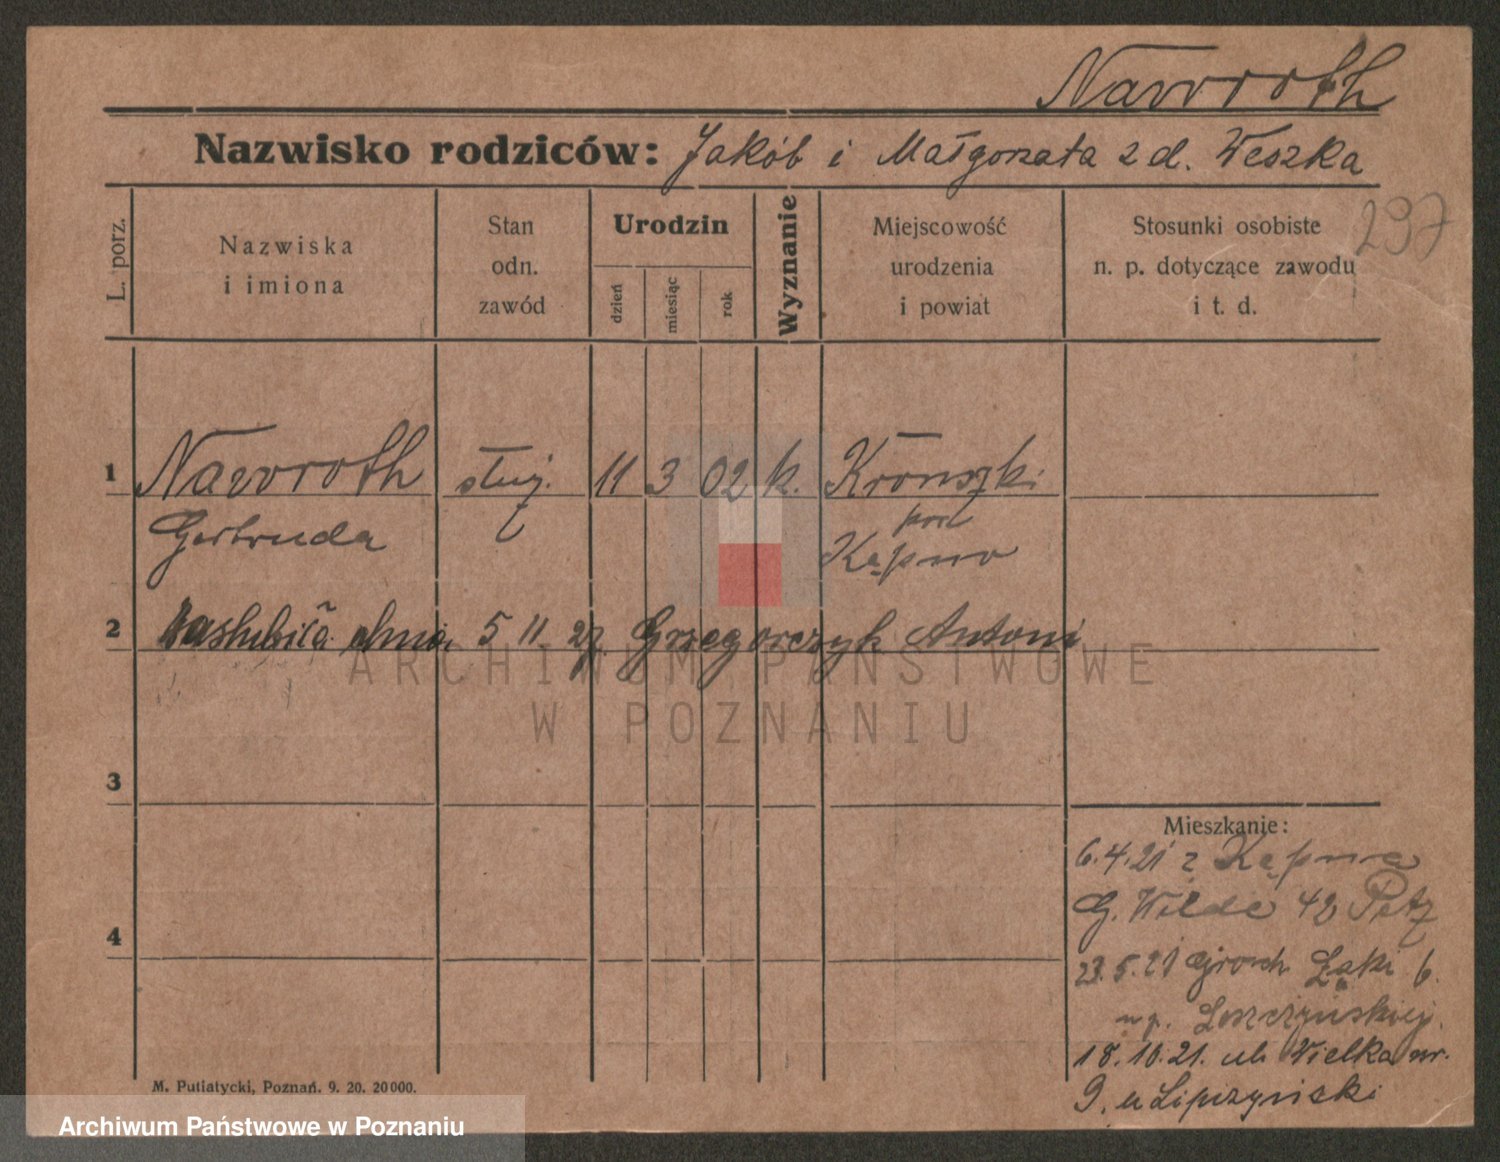 Nawroth
Nazwisko rodziców: Jakób i Małgorzata z d. Weszka
297
L. porz.
Nazwiska
i imiona
Stan
odn.
zawód
Urodzin
dzień
miesiąc
rok
Wyznanie
Miejscowość
urodzenia
i powiat
Stosunki osobiste
n. p. dotyczące zawodu
i t. d.
1 Nawroth służ. 11 3 02 k.
Gertruda
pod
Kępno
2 zaślubiła dnia 5 11 27. Grzegorczyk Antoni
ARCHIWUM PAŃSTWOWE
W POZNANIU
3
4
Mieszkanie:
6.4.21 z Kępna
G. Wilde 42
23.5.21 Łąki 6.
Leszczyńskiej.
18.10.21. ul. Wielka nr.
9. u Lipczyński
M. Putiatycki, Poznań. 9. 20. 20000.
Archiwum Państwowe w Poznaniu